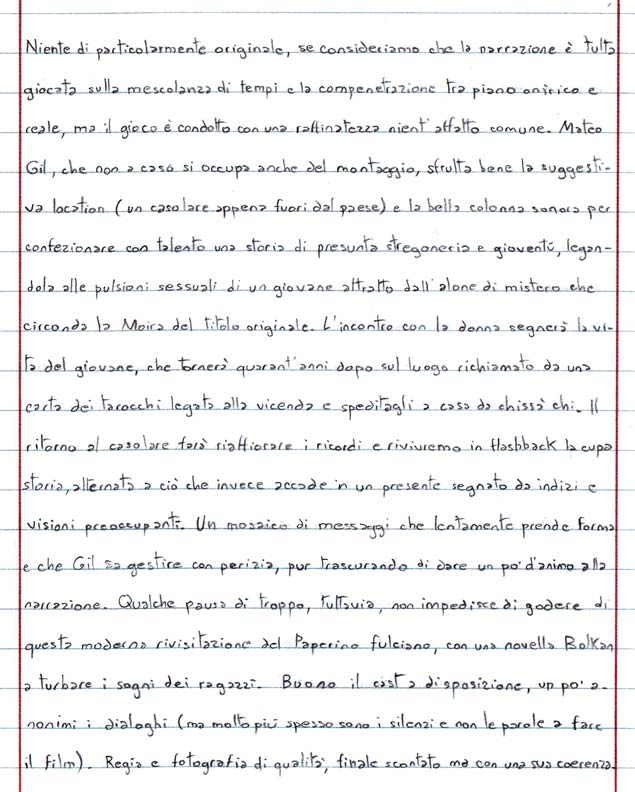 Niente di particolarmente originale, se consideriamo che la narrazione è tutta
giocata sulla mescolanza di tempi e la compenetrazione tra piano onirico e
reale, ma il gioco è condotto con una raffinatezza nient'affatto comune. Mateo
Gil, che non a caso si occupa anche del montaggio, sfrutta bene la suggesti-
va location (un casolare appena fuori dal paese) e la bella colonna sonora per
confezionare con talento una storia di presunta stregoneria e gioventù, legan-
dola alle pulsioni sessuali di un giovane attratto dall'alone di mistero che
circonda la Moira del titolo originale. L'incontro con la donna segnerà la vi-
ta del giovane, che tornerà quarant'anni dopo sul luogo richiamato da una
carta dei tarocchi legata alla vicenda e speditagli a casa da chissà chi. Il
ritorno al casolare farà riaffiorare i ricordi e rivivremo in flashback la cupa
storia, alternata a ciò che invece accade in un presente segnato da indizi e
visioni preoccupanti. Un mosaico di messaggi che lentamente prende forma
e che Gil sa gestire con perizia, pur trascurando di dare un po' d'anima alla
narrazione. Qualche pausa di troppo, tuttavia, non impedisce di godere di
questa moderna rivisitazione del Paperino fulciano, con una novella Bolkan
a turbare i sogni dei ragazzi. Buono il cast a disposizione, un po' a-
nonimi i dialoghi (ma molto più spesso sono i silenzi e non le parole a fare
il film). Regia e fotografia di qualità, finale scontato ma con una sua coerenza.